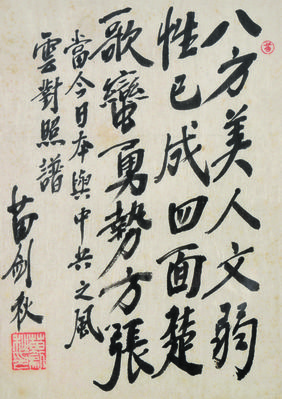 八方美人文弱
性已成四面楚
歌蠻勇勢方張
當今日本與中共之風
雲對照譜
苗劍秋